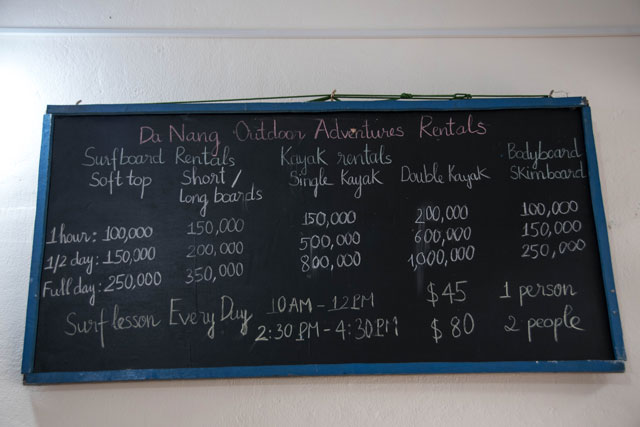 Da Nang Outdoor Adventures Rentals
Surfboard Rentals Kayak rentals Bodyboard
Soft top Short / Single Kayak Double Kayak Skimboard
Long boards
1 hour: 100,000 150,000 150,000 200,000 100,000
1/2 day: 150,000 200,000 500,000 600,000 150,000
Full day: 250,000 350,000 800,000 1,000,000 250,000
Surf lesson Every Day 10 AM - 12 PM $45 1 person
2:30 PM - 4:30 PM $80 2 people